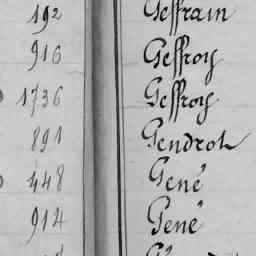 192 Geffrain
916 Geffroy
1736 Geffroy
891 Gendrot
448 Gené
914 Gené